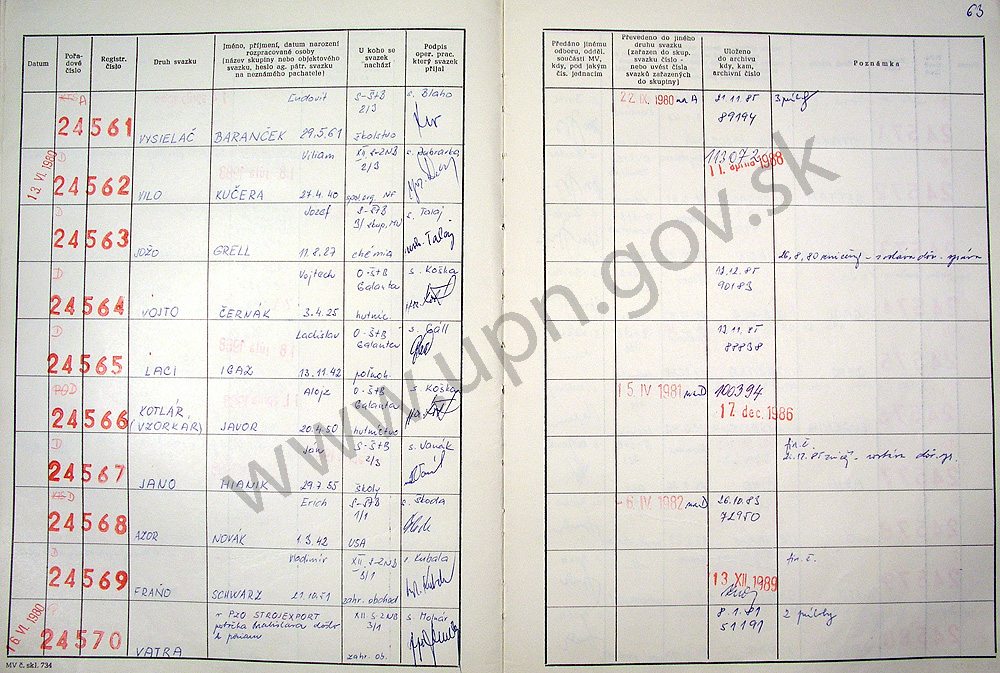 63
Datum
Pořadové číslo
Registr. číslo
Druh svazku
Jméno, příjmení, datum narození rozpracované osoby (název skupiny nebo objektového svazku, heslo ag. pátr. svazku na neznámého pachatele)
U koho se svazek nachází
Podpis oper. prac. který svazek přijal
Předáno jinému odboru, odděl. součásti MV, kdy, pod jakým čís. jednacím
Převedeno do jiného druhu svazku (zařazen do skup. svazku číslo - nebo uvést čísla svazků zařazených do skupiny)
Uloženo do archivu kdy, kam, archivní číslo
Poznámka
A Ľudovít S-ŠtB s. Blaho 22. IX. 1980 na A 21.11.85
24561 VYSIELAČ BARANČEK 29.5.61 2/3 školstvo 89194
13. VI. 1980 D Viliam XII. S-ZNB s. Dúbravka 113072
24562 VILO KUČERA 27.4.40 2/3 NF 1988
D Jozef S-ŠtB s. Talaj
24563 JOŽO GRELL 11.8.27 chémia 26.8.80
D Vojtech O-ŠtB s. Koška 12.85
24564 VOJTO ČERNÁK 3.4.25 Galanta hutníc. 90183
D Ladislav O-ŠtB s. Gáll 85
24565 LACI IGAZ 13.11.42 Galanta 88838
D Alojz O-ŠtB s. Koška 15. IV. 1981 na D 100394
24566 KOTLÁR, (VZORKAR) JAVOR 20.4.50 Galanta hutníctvo 17. dec. 1986
D Ján S-ŠtB s. Vanák fin. č.
24567 JANO HIANIK 29.7.55 2/3 školy
D Erich S-ŠtB s. Škoda - 6. IV. 1982 na D 26.10.83
24568 AZOR NOVÁK 1.3.42 1/1 USA 72950
D Vladimír XII. S-ZNB s. Kubala 13. XII. 1989 fin. č.
24569 FRAŇO SCHWARZ 21.10.51 3/1 zahr. obchod
16. VI. 1980 PZO STROJEXPORT XII S-ZNB s. Molnár 8.1.81
24570 VATRA pobočka Bratislava 3/1 zahr. ob. 51191 2
MV č. skl. 734
www.upn.gov.sk